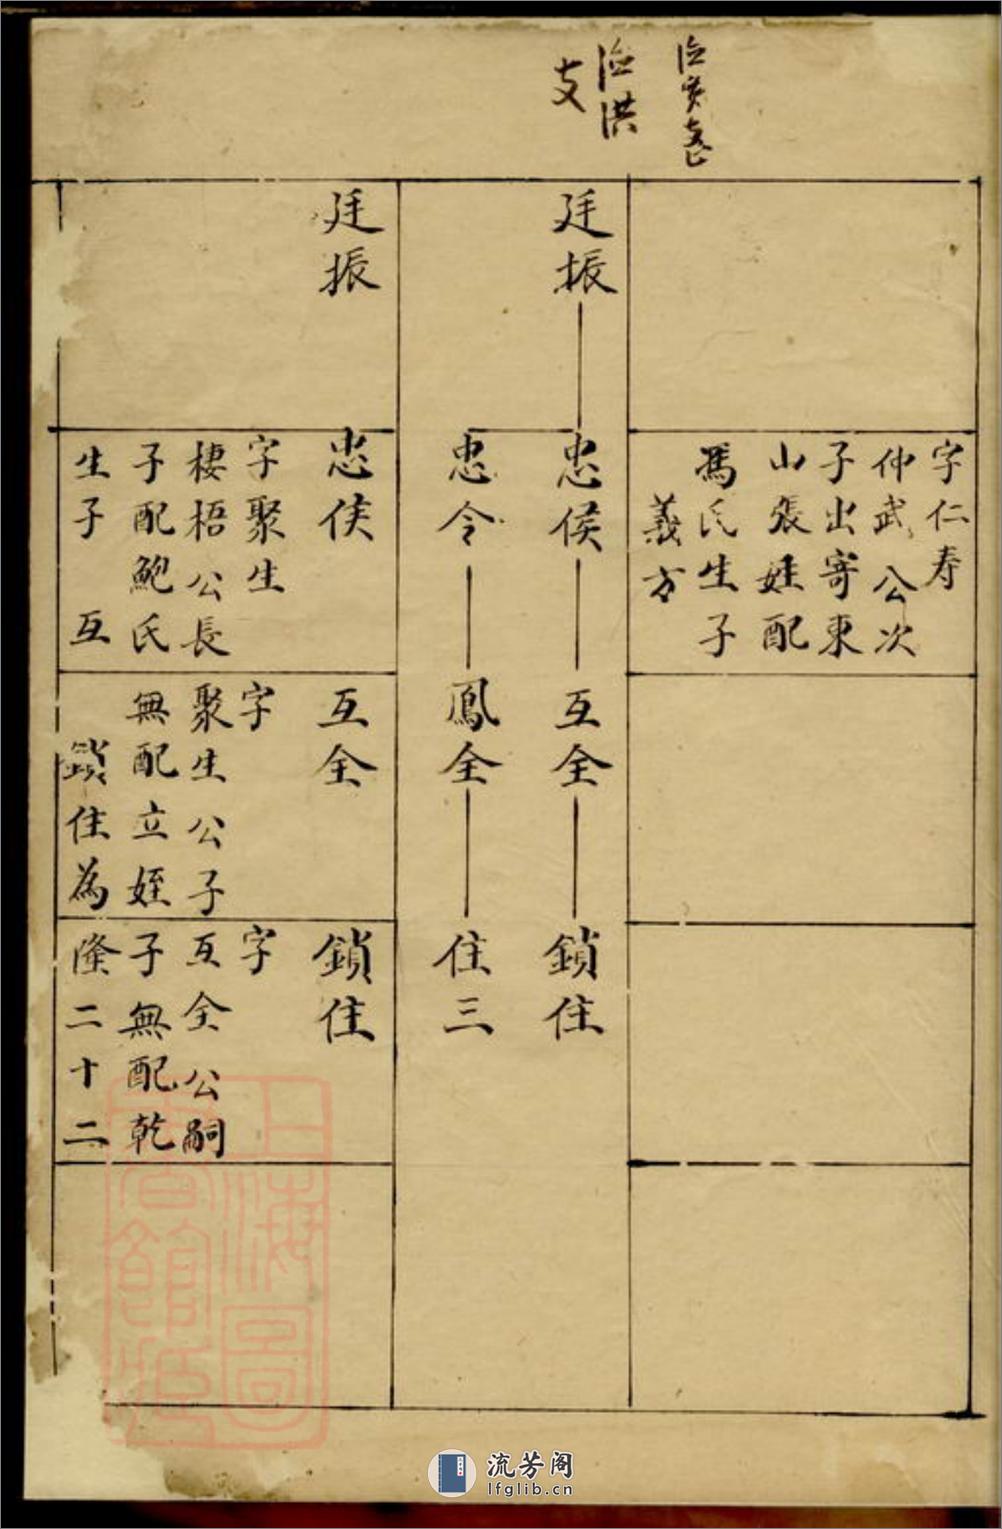 支
洪
字仁寿
仲武公次
子出寄東
山張姓配
馮氏生子
義方
廷振
忠侯
互全
鎖住
忠令
鳳全
住三
廷振
忠侯
字聚生
棲梧公長
子配鮑氏
生子 互
互全
字
聚生公子
無配立姪
鎖住為
鎖住
字
互全公嗣
子無配乾
隆二十二
上海圖
書館藏
流芳阁
lfglib.cn